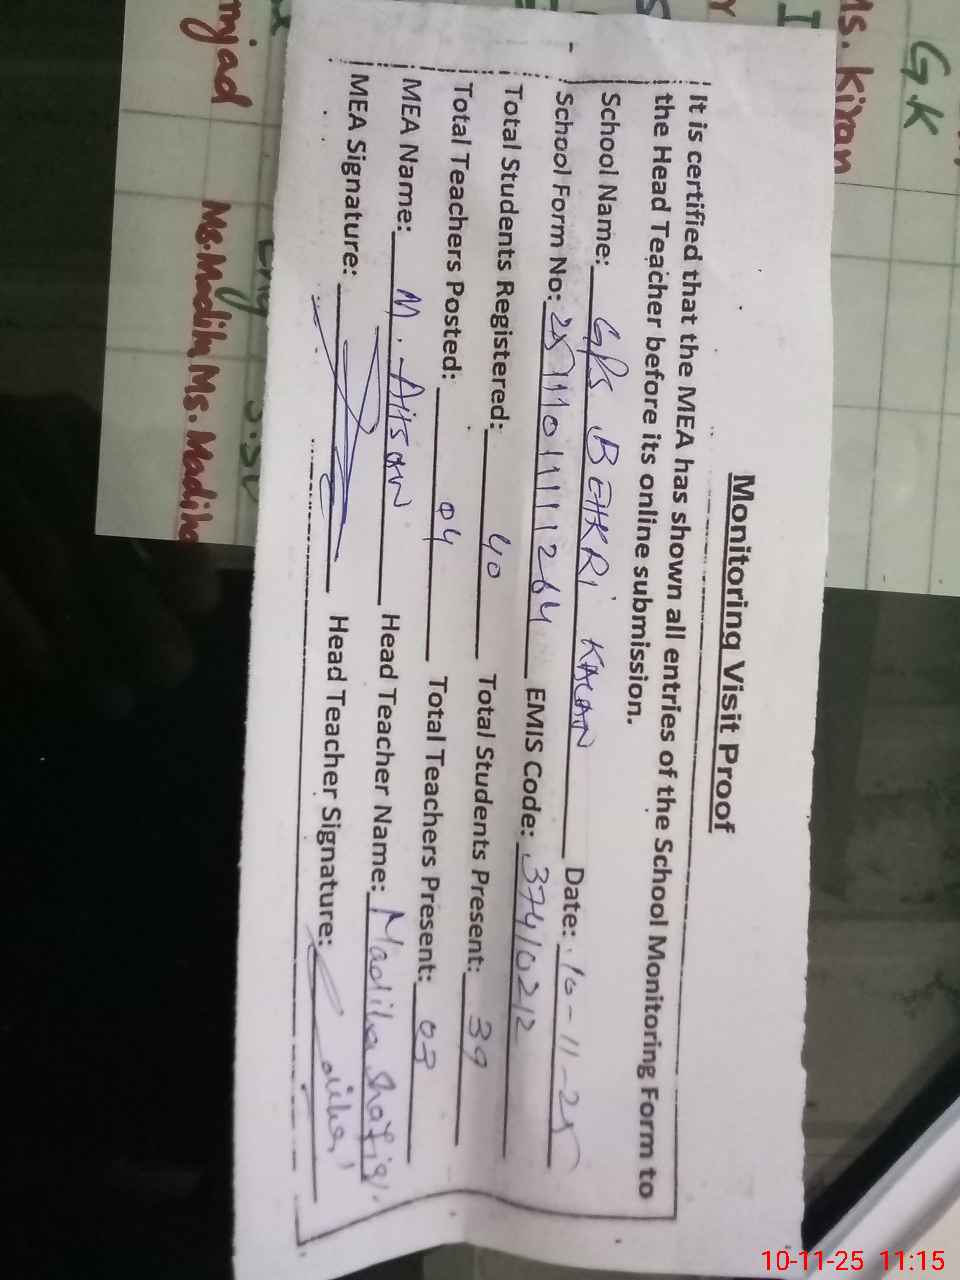 Monitoring Visit Proof
It is certified that the MEA has shown all entries of the School Monitoring Form to
the Head Teacher before its online submission.
School Name: GPS BEHKRI KALAN Date: 10-11-25
School Form No: 25111011111264 EMIS Code: 37410212
Total Students Registered: 40 Total Students Present: 39
Total Teachers Posted: 04 Total Teachers Present: 03
MEA Name: M. AHSAN Head Teacher Name: Madiha Shafiq.
MEA Signature: Head Teacher Signature:
G.K
Ms. Kiran
mjad Ms. Madiha Ms. Madiha
10-11-25 11:15